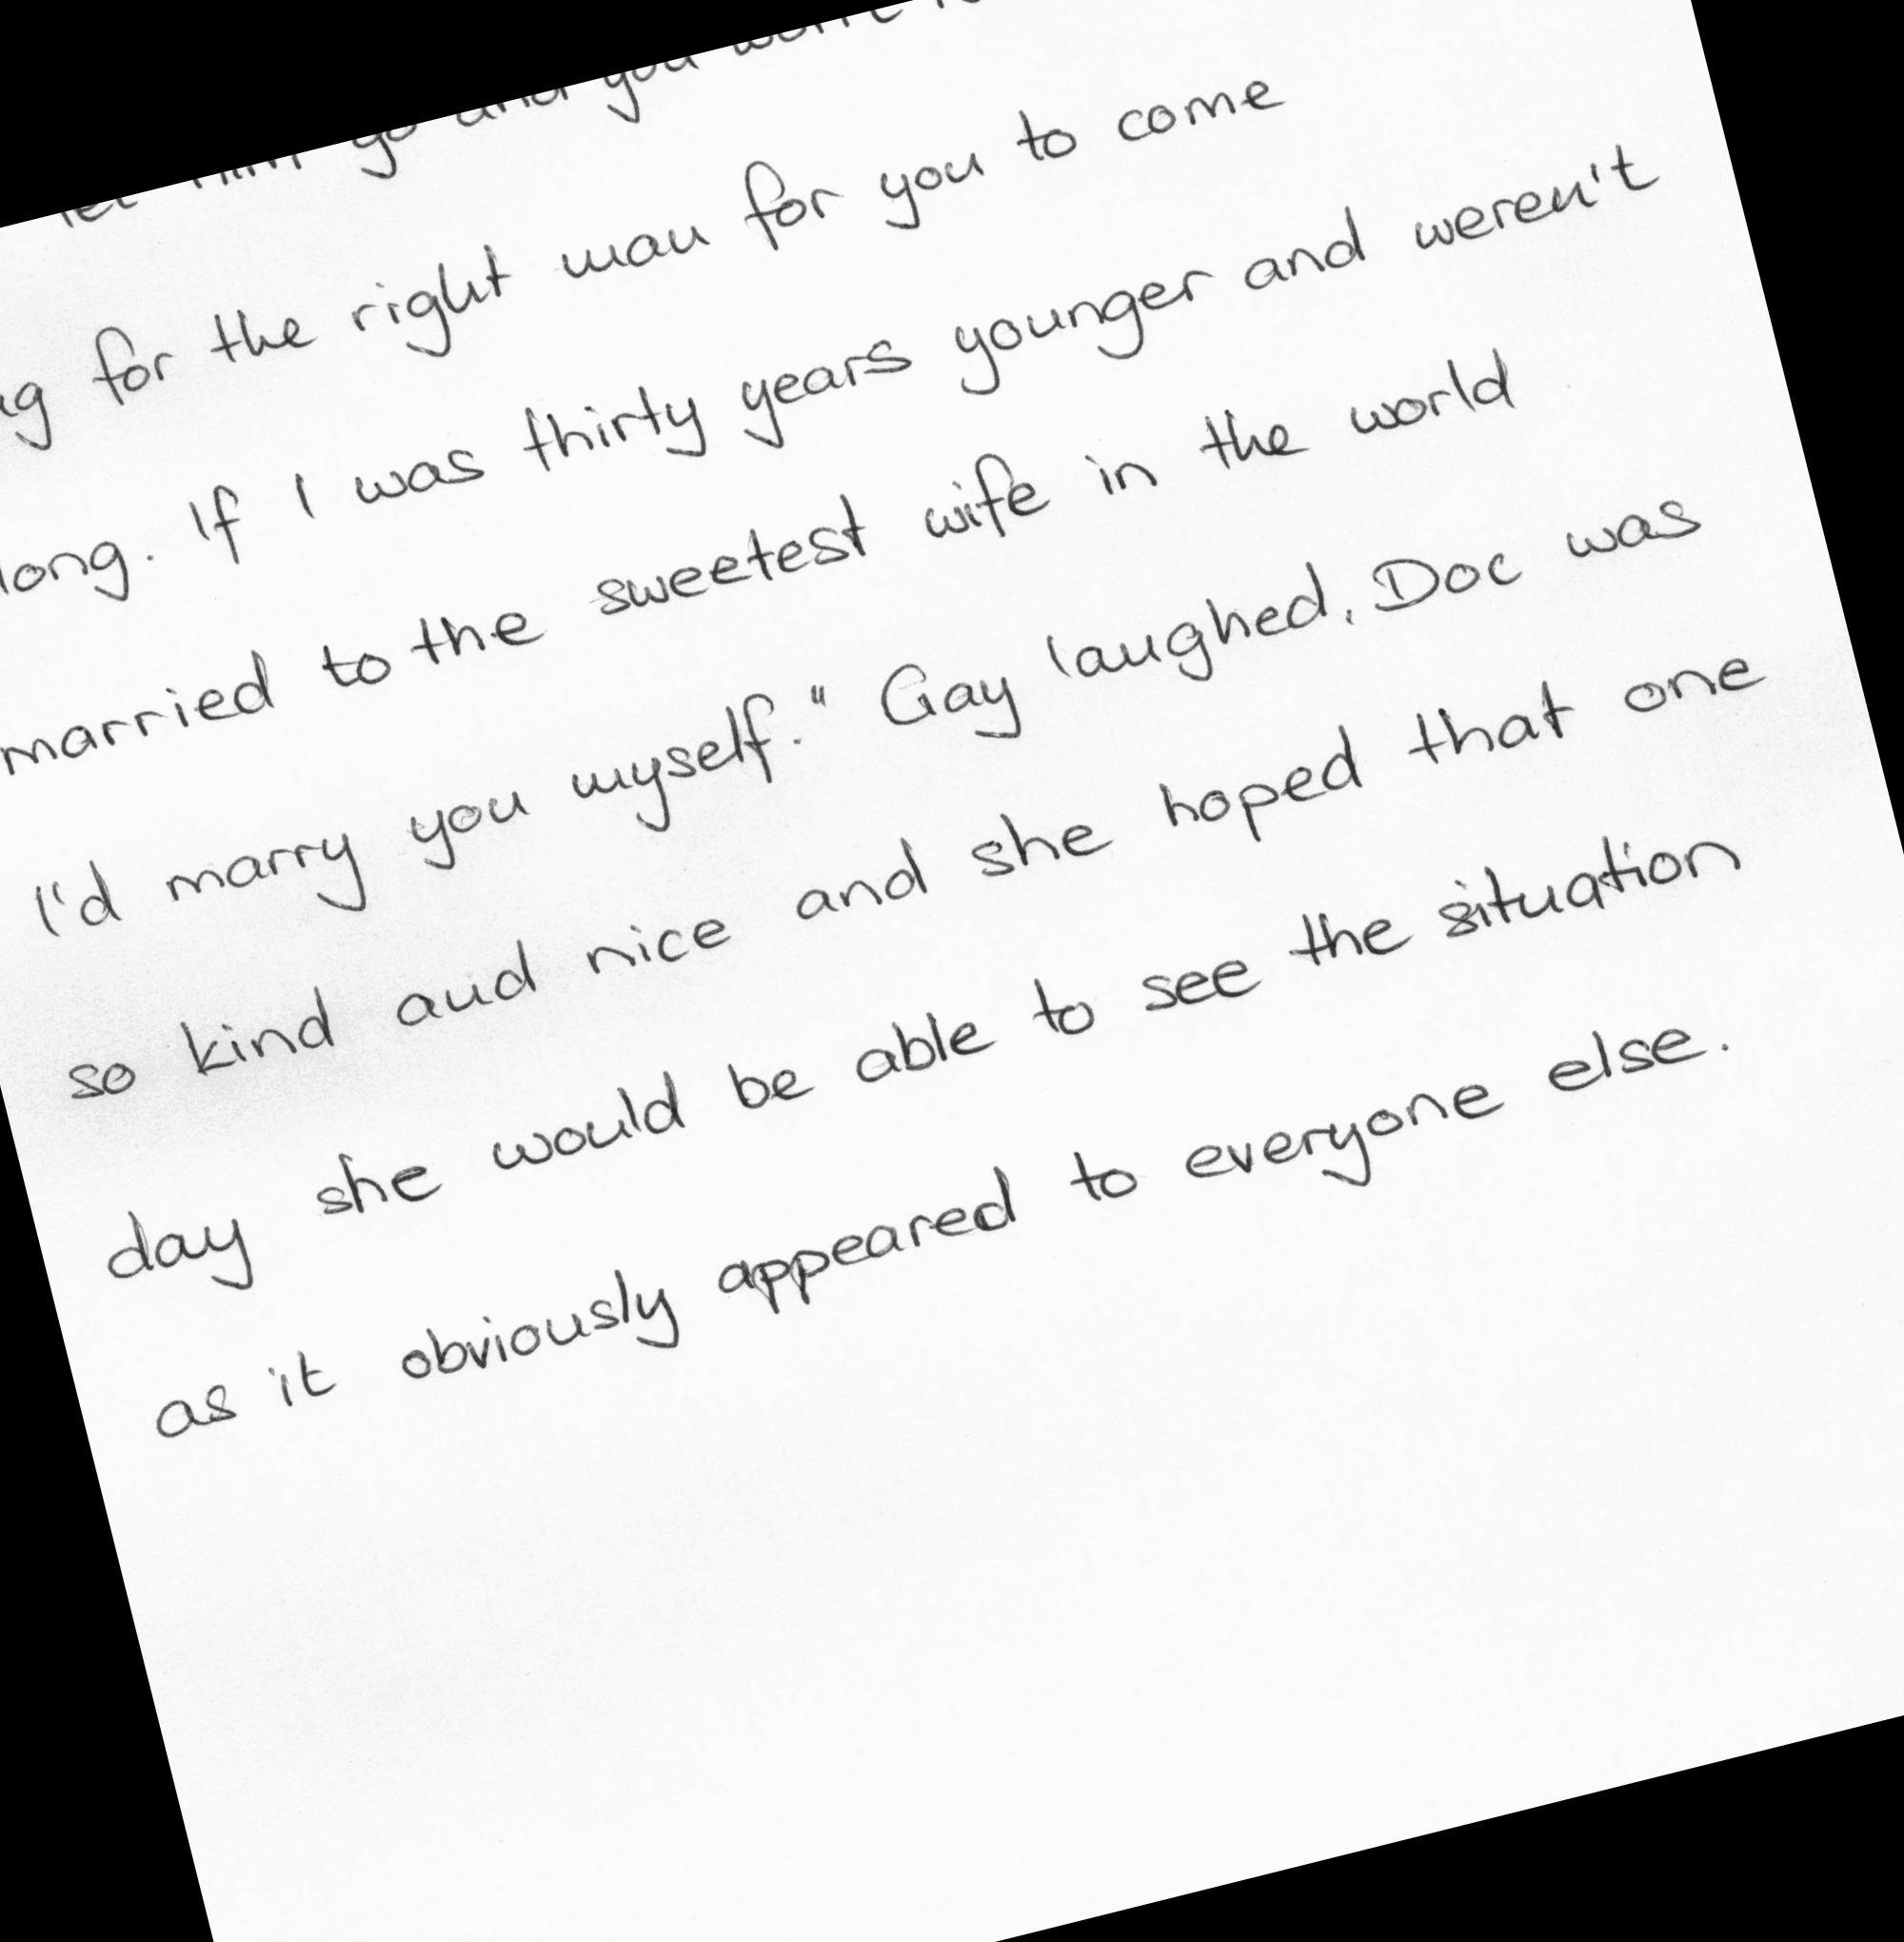 let him go and you
for the right man for you to come
long. If I was thirty years younger and weren't
married to the sweetest wife in the world
I'd marry you myself." Gay laughed. Doc was
so kind and nice and she hoped that one
day she would be able to see the situation
as it obviously appeared to everyone else.